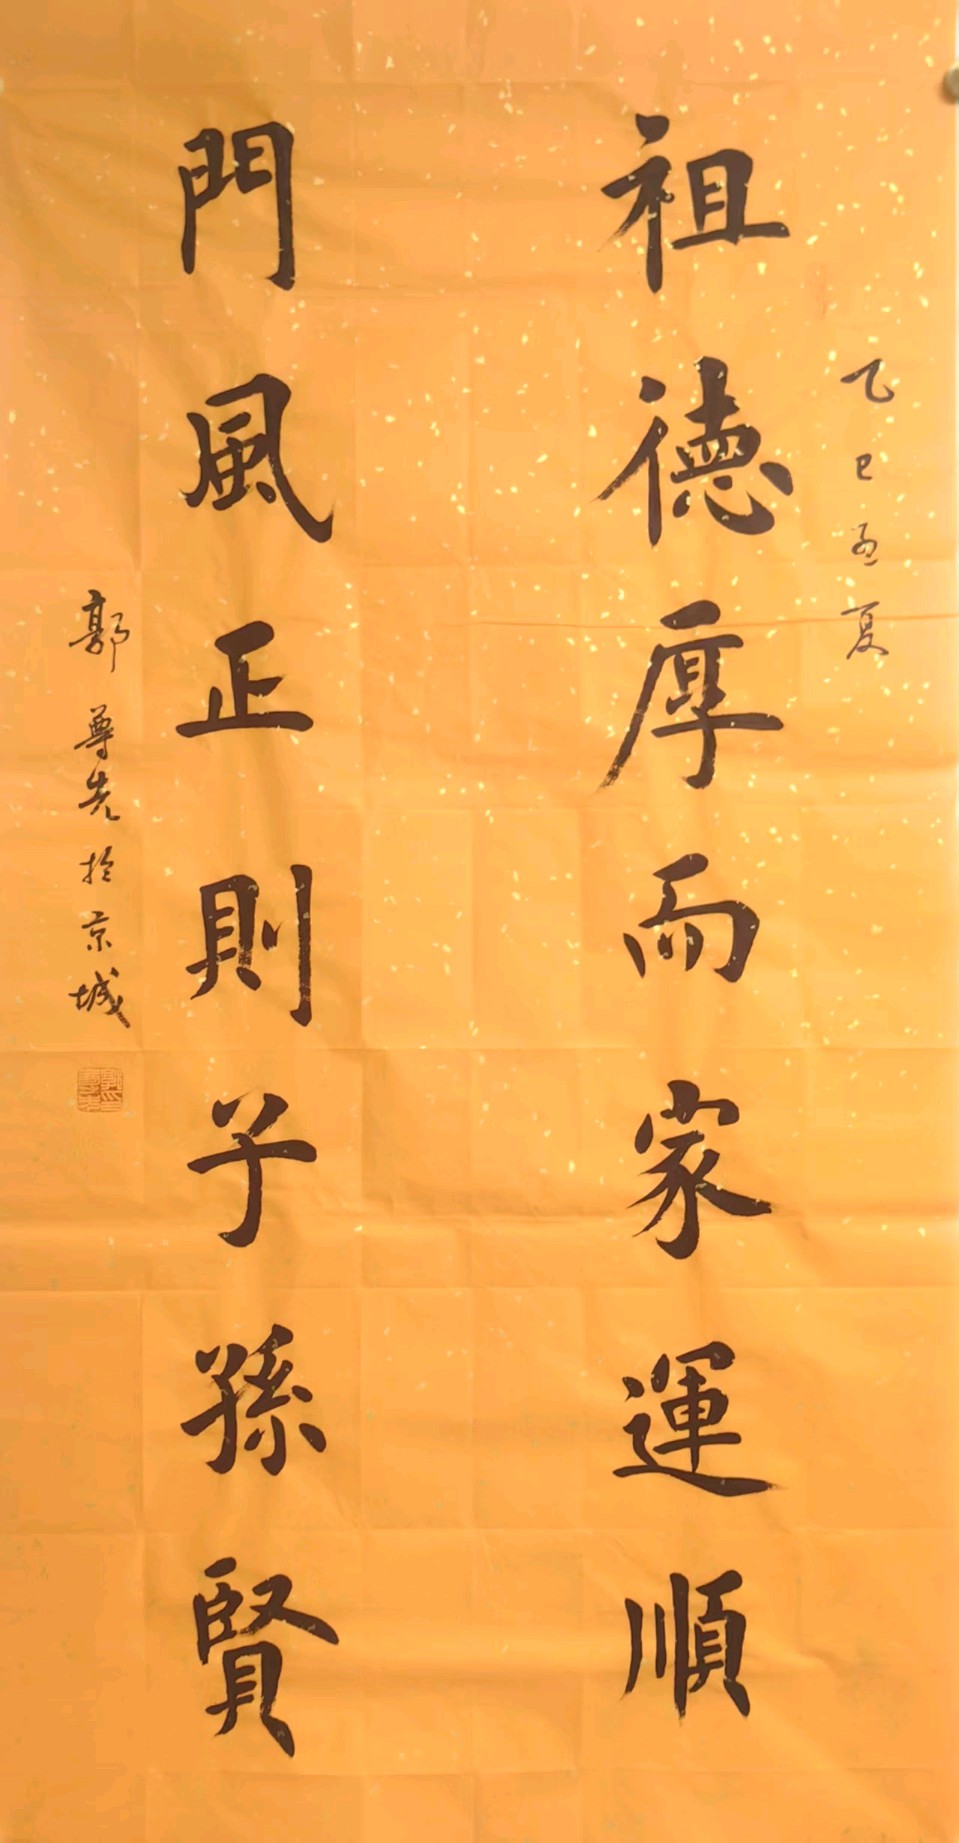 乙巳孟夏
祖德厚而家運順
門風正則子孫賢
郭尊先於京城